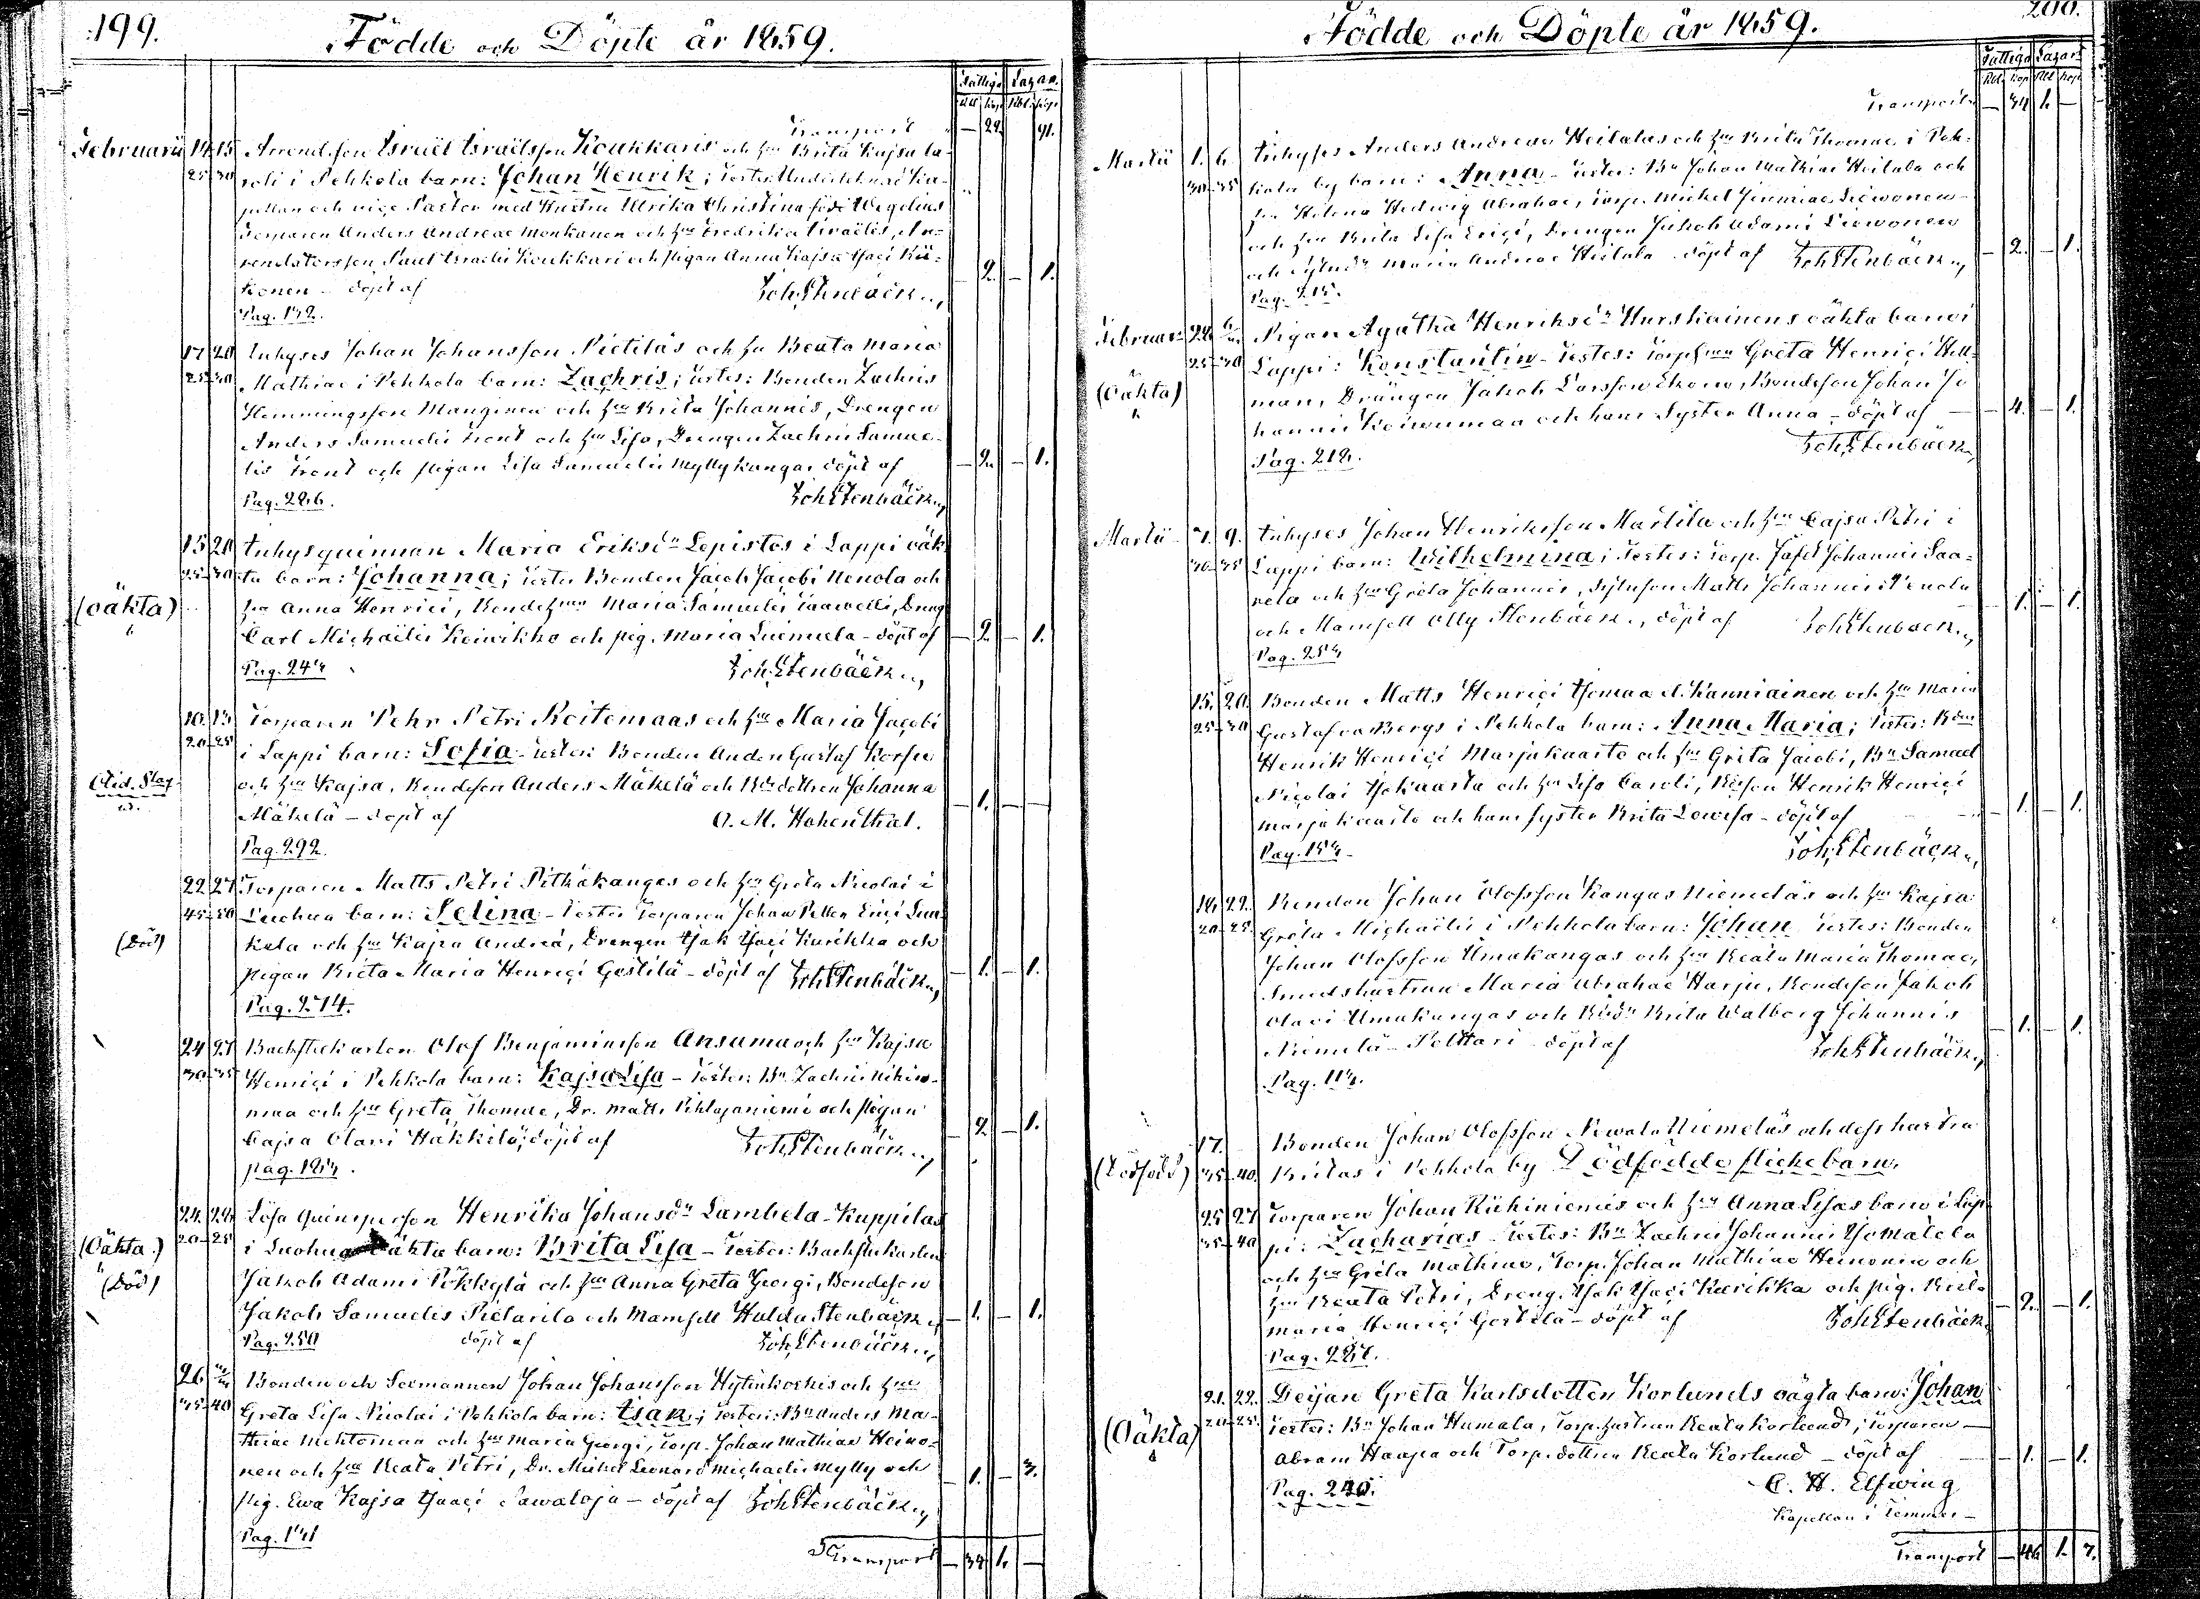 199.
Födde och Döpte år 1859.
Fattiga Lazar.
Rbl. Kop. Rbl. Kop.
Transport — 22. 91.
Februarii 14 15 Arrend.son Israël Israëlsson Koukkaris och hu Brita Kajsa Ca-
25-30 roli i Pehkola barn: Johan Henrik; Testes: Undertecknad Ka-
pellan och vice Pastor med Hustru Ulrika Christina född Wegelius
Torparen Anders Andreae Monkanen och hu Fredrika Israelis, Ar-
rendatorsson Paul Israelis Koukkari och pigan Anna Kajsa Isaci Kii-
konen — döpt af Joh. Stenbäck — 2. — 1.
Pag. 132.
17 20 Inhyses Johan Johansson Pietiläs och hu Beata Maria
25-30 Mathiae i Pehkola barn: Zachris; Testes: Bonden Zachris
Hemmingsson Manginen och hu Brita Johannis, Drengen
Anders Samuelis Tront och hu Lisa, Drengen Zachris Samue-
lis Tront och pigan Lisa Samuelis Myllykangas döpt af — 2. — 1.
Pag. 226. Joh. Stenbäck
15 20 Inhysqvinnan Maria Eriksdr Lepistös i Lappi oäk-
25-30 ta barn: Johanna; Testes Bonden Jacob Jacobi Nenola och
(oäkta) hu Anna Henrici, Bondehun Maria Samuelis Taawetti, Dreng
Carl Michaelis Keiwikko och pig. Maria Luimula — döpt af — 2. — 1.
Pag. 244 Joh. Stenbäck
10. 13. Torparen Pehr Petri Roitomaas och hu Maria Jacobi
20-25 i Lappi barn: Sofia — Testes: Bonden Anders Gustaf Korsu
och hu Kajsa, Bondeson Anders Mäkelä och Bdedottren Johanna — 1. — —
Mäkelä — döpt af O. M. Hohenthal.
Pag. 292.
22 27 Torparen Matts Petri Pitkäkangas och hu Greta Nicolai i
45-50 Luohua barn: Selina — Testes Torparen Johan
(Död) och hu Kajsa Andreä, Drengen Isak Isaci Karikka och
pigan Brita Maria Henrici Gestilä — döpt af Joh. Stenbäck — 1. — 1.
Pag. 274.
24 27 Backstukarlen Olof Benjaminsson Ansamaa och hu Kajsa
30-35 Henrici i Pehkola barn: Kajsa Lisa — Testes: Bn Zachris Nikin-
maa och hu Greta Thomae, Dr. Matts Pihlajaniemi och pigan — 2. — 1.
Cajsa Olavi Häkkilä; döpt af Joh. Stenbäck
pag. 184.
24. 28 Lösa Qvinsperson Henrika Johansdr Lambela-Kuppilas
20-25 (Oäkta.) i Luohua oäkta barn: Brita Lisa — Testes: Backstukarlen
(Död) Jakob Adami Pökkylä och hu Anna Greta Georgi, Bondeson
Jakob Samuelis Pietarila och Mamsell Hulda Stenbäck — 1. — 1.
Pag. 250 döpt af Joh. Stenbäck
26. Bonden och Sexmannen Johan Johansson Hytinkoskis och hu
35-40 Greta Lisa Nicolai i Pehkola barn: Isak; Testes: Bn Anders Ma-
thiae Mehtomaa och hu Maria Georgi, Torp. Johan Mathiae Heino-
nen och hu Beata Petri, Dr. Mickel Leonard Michaelis Mylly och — 1. — 3.
Pig. Ewa Kajsa Isaaci Sawaloja — döpt af Joh. Stenbäck
Pag. 141
Transport — 34 1. —
200.
Födde och Döpte år 1859.
Fattiga Lazar.
Rbl. Kop. Rbl. Kop.
Transport — 34 1. —
Martii 1. 6. Inhyses Anders Andreae Heilalas och hu Brita Thomae i Peh-
30-35 kola by barn: Anna — Testes: Bn Johan Mathiae Heilala och
hu Helena Hedwig Abrahae, Torp. Mickel Jeremiae Siewonen
och hu Brita Lisa Erici, Drengen Jakob Adami Siewonen — 2. — 1.
och Sytndr Maria Andreae Heilala döpt af Joh. Stenbäck
Pag. 215.
Februari 28 Pigan Agatha Henriksdr Hurskainens oäkta barn i
25-30 Lappi: Konstantin — Testes: Torphun Greta Henrici Hell-
(Oäkta) man, Drängen Jakob Larsson Ekono, Bondeson Johan Jo
hannis Keiwumaa och hans Syster Anna — döpt af — 4. — 1.
Pag. 212. Joh. Stenbäck
Martii 7. 9. Inhyses Johan Henriksson Marttila och hu Cajsa Petri i
30-35 Lappi barn: Wilhelmina; Testes: Torp. Jafet Johannis Saa-
rela och hu Greta Johannis, Sytnson Matts Johannis Nenola — 1. — 1.
och Mamsell Olly Stenbäck, döpt af Joh. Stenbäck
Pag. 254
15. 20. Bonden Matts Henrici Isomaa l. Kanniainen och hu Maria
25-30 Gustafva Bergs i Pehkola barn: Anna Maria; Testes: Bden
Henrik Henrici Marjukaarto och hu Greta Jacobi, Bn Samuel
Nicolai Isokaarta och hu Lisa Caroli, Bdeson Henrik Henrici — 1. — 1.
Marjukaarto och hans syster Brita Lowisa — döpt af
Pag. 154. Joh. Stenbäck
18. 22. Bonden Johan Olofsson Kangas Niemeläs och hu Kajsa
20-25. Greta Michaelis i Pehkola barn: Johan Testes: Bonden
Johan Olofsson Umakangas och hu Beata Maria Thomae,
Smedshustrun Maria Abrahae Harju, Bondeson Jakob
Olavi Umakangas och Bdedr Brita Walborg Johannis — 1. — 1.
Niemelä-Polttari — döpt af Joh. Stenbäck
Pag. 114.
17. Bonden Johan Olofsson Newala Niemeläs och dess hustru
(Dödfödd) 35-40. Britas i Pehkola by Dödfödde flickebarn.
25 27 Torparen Johan Riihiniemis och hu Anna Lisas barn i Lap-
35-40 pi: Zacharias — Testes: Bn Zachris Johannis Isomatela
och hu Greta Mathiae, Torp. Johan Mathiae Heinonen och
hu Beata Petri, Dreng. Isak Isaci Karikka och pig. Brita — 2. — 1.
Maria Henrici Gestilä — döpt af Joh. Stenbäck
Pag. 287.
21. 22. Deijan Greta Karlsdotter Korlunds oägta barn: Johan
(Oäkta) 20-25. Testes: Bn Johan Humala, Torp.hustrun Beata Korlund, Torparen
Abram Haapa och Torp.dottren Beata Korlund — döpt af — 1. — 1.
Pag. 240. C. H. Elfwing
Kapellan i Temmes
Transport — 46 1. 7.